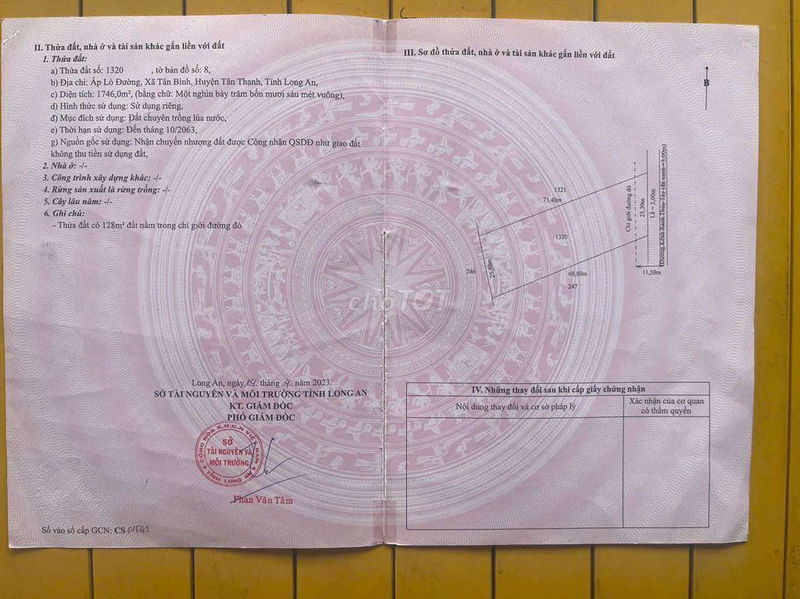 II. Thửa đất, nhà ở và tài sản khác gắn liền với đất
1. Thửa đất:
a) Thửa đất số: 1320 , tờ bản đồ số: 8,
b) Địa chỉ: Ấp Lò Đường, Xã Tân Bình, Huyện Tân Thạnh, Tỉnh Long An,
c) Diện tích: 1746,0m², (bằng chữ: Một nghìn bảy trăm bốn mươi sáu mét vuông),
d) Hình thức sử dụng: Sử dụng riêng,
đ) Mục đích sử dụng: Đất chuyên trồng lúa nước,
e) Thời hạn sử dụng: Đến tháng 10/2063,
g) Nguồn gốc sử dụng: Nhận chuyển nhượng đất được Công nhận QSDĐ như giao đất
không thu tiền sử dụng đất,
2. Nhà ở: -/-
3. Công trình xây dựng khác: -/-
4. Rừng sản xuất là rừng trồng: -/-
5. Cây lâu năm: -/-
6. Ghi chú:
- Thửa đất có 128m² đất nằm trong chỉ giới đường đỏ
Long An, ngày tháng 9. năm 2023
SỞ TÀI NGUYÊN VÀ MÔI TRƯỜNG TỈNH LONG AN
KT. GIÁM ĐỐC
PHÓ GIÁM ĐỐC
CỘNG HÒA X.H.C.N VIỆT NAM
SỞ
TÀI NGUYÊN VÀ
MÔI TRƯỜNG
TỈNH LONG AN
Phan Văn Tâm
Số vào sổ cấp GCN: CS
III. Sơ đồ thửa đất, nhà ở và tài sản khác gắn liền với đất
B
1321
73,40m
1320
246
25,00m
68,80m
247
Chỉ giới đường đỏ
25,30m
Lề = 5,00m
11,50m
chợTỐT
IV. Những thay đổi sau khi cấp giấy chứng nhận
Nội dung thay đổi và cơ sở pháp lý
Xác nhận của cơ quan
có thẩm quyền